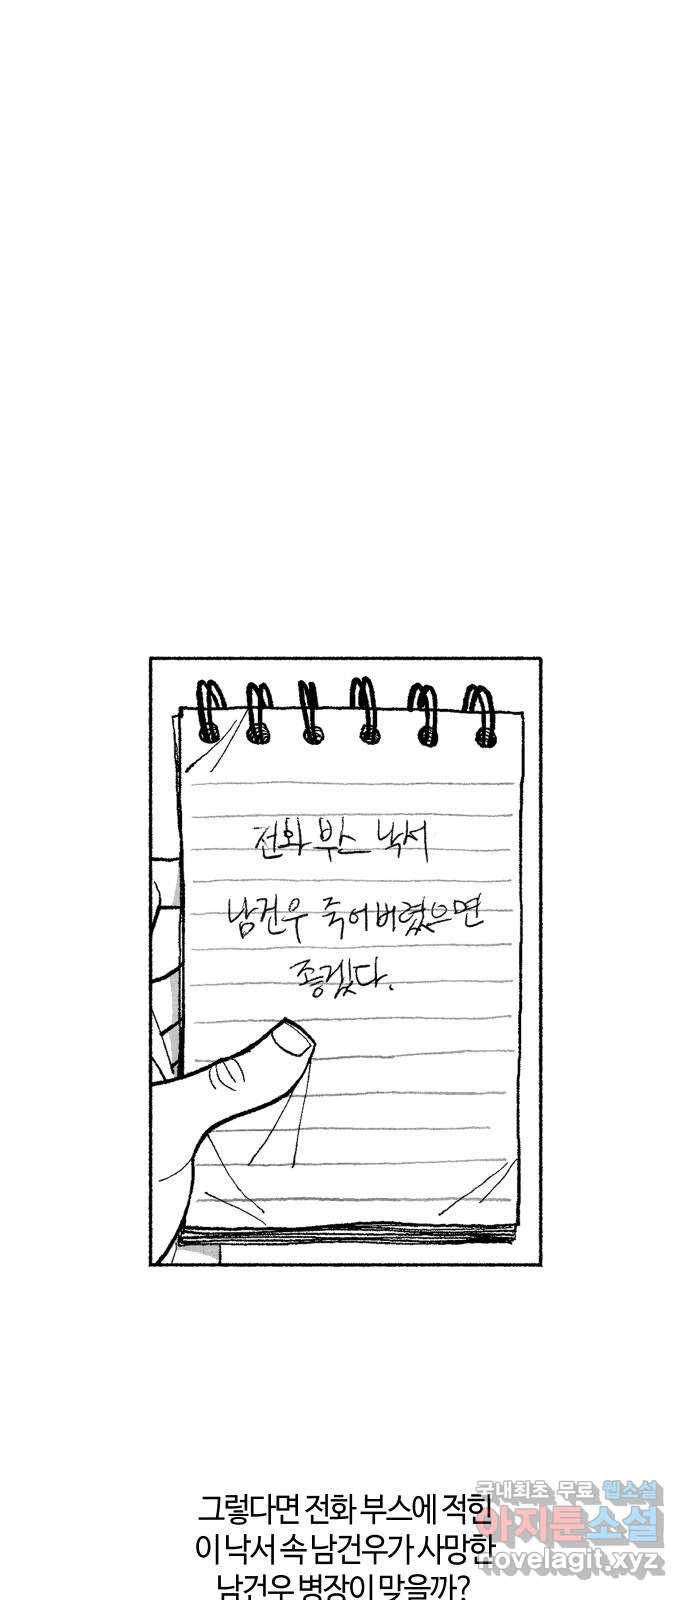 전화 부스 낙서
남건우 죽어버렸으면
좋겠다.
그렇다면 전화 부스에 적힌
이 낙서 속 남건우가 사망한
남건우 병장이 맞을까?
국내최초 무료 웹소설
아지툰소설
novelagit.xyz